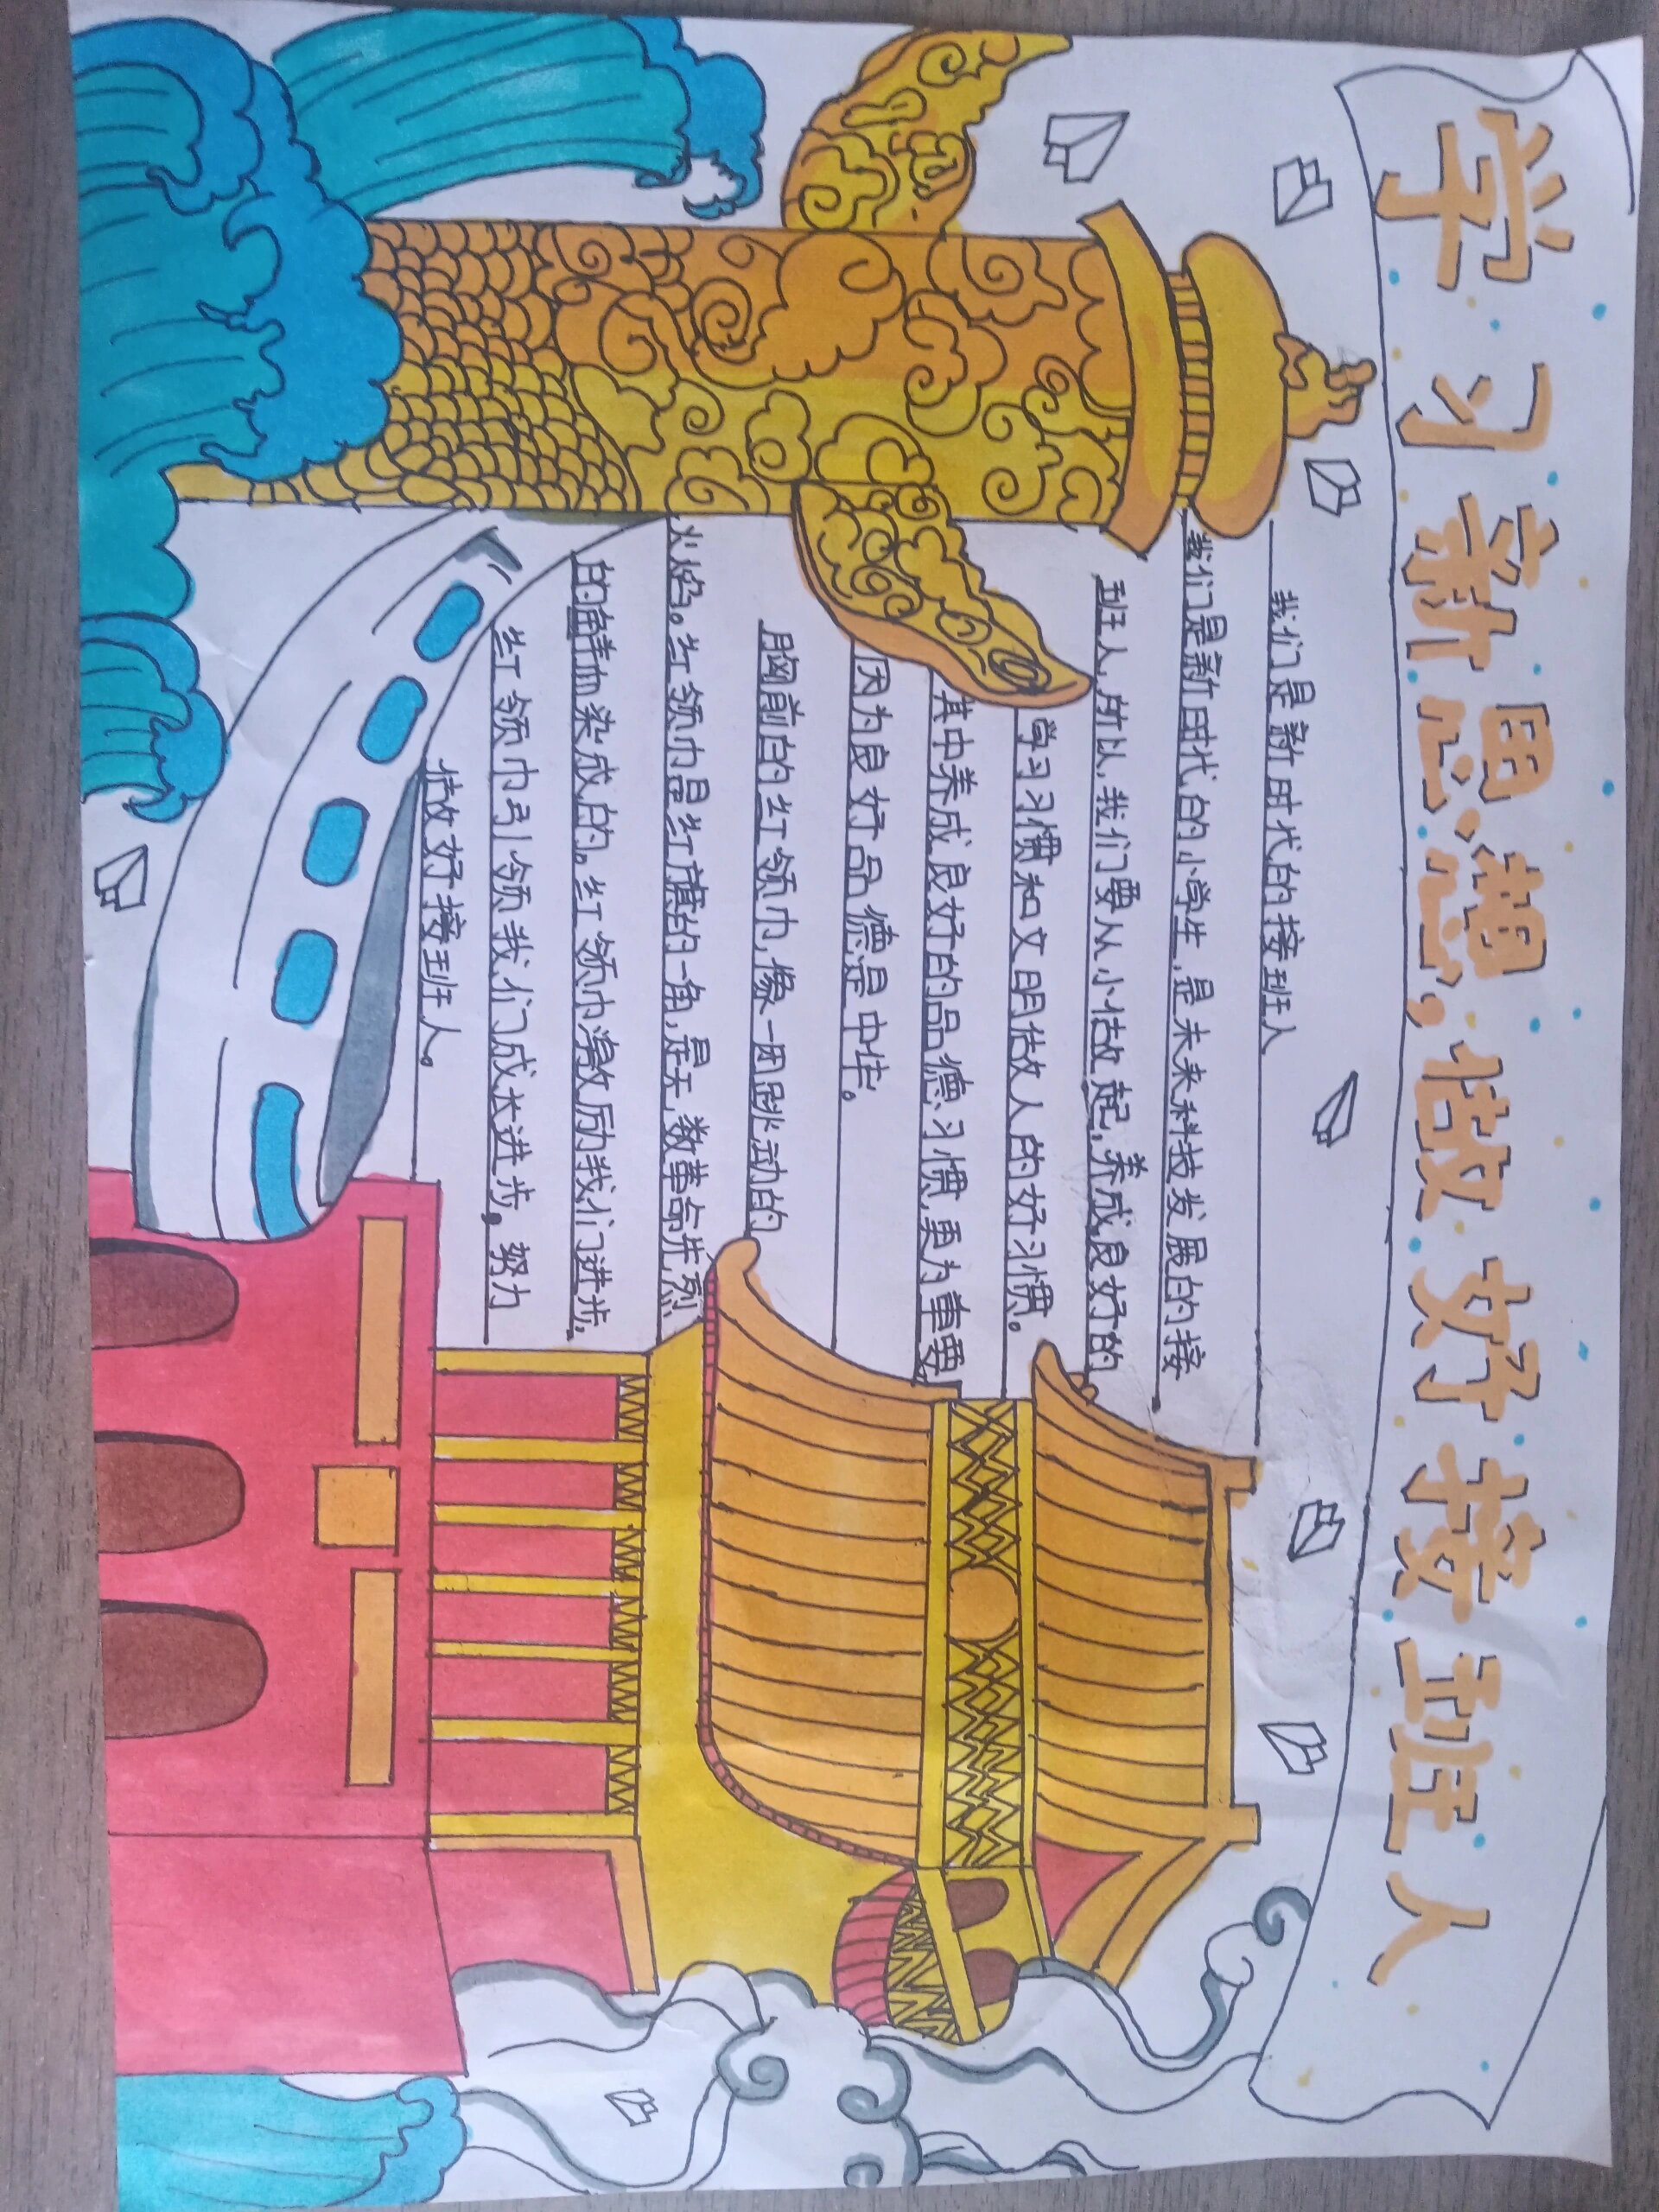 学习新思想，做好接班人
我们是新时代的接班人
我们是新时代的小学生，是未来科技发展的接
班人，所以，我们要从小做起，养成良好的
学习习惯和文明做人的好习惯。
其中养成良好的品德习惯，更为重要
因为良好品德是中华。
胸前的红领巾，像一团跳动的
火焰。红领巾是红旗的一角，是无数革命先烈
的鲜血染成的。红领巾激励我们进步，
红领巾引领我们成长进步。努力
做好接班人。